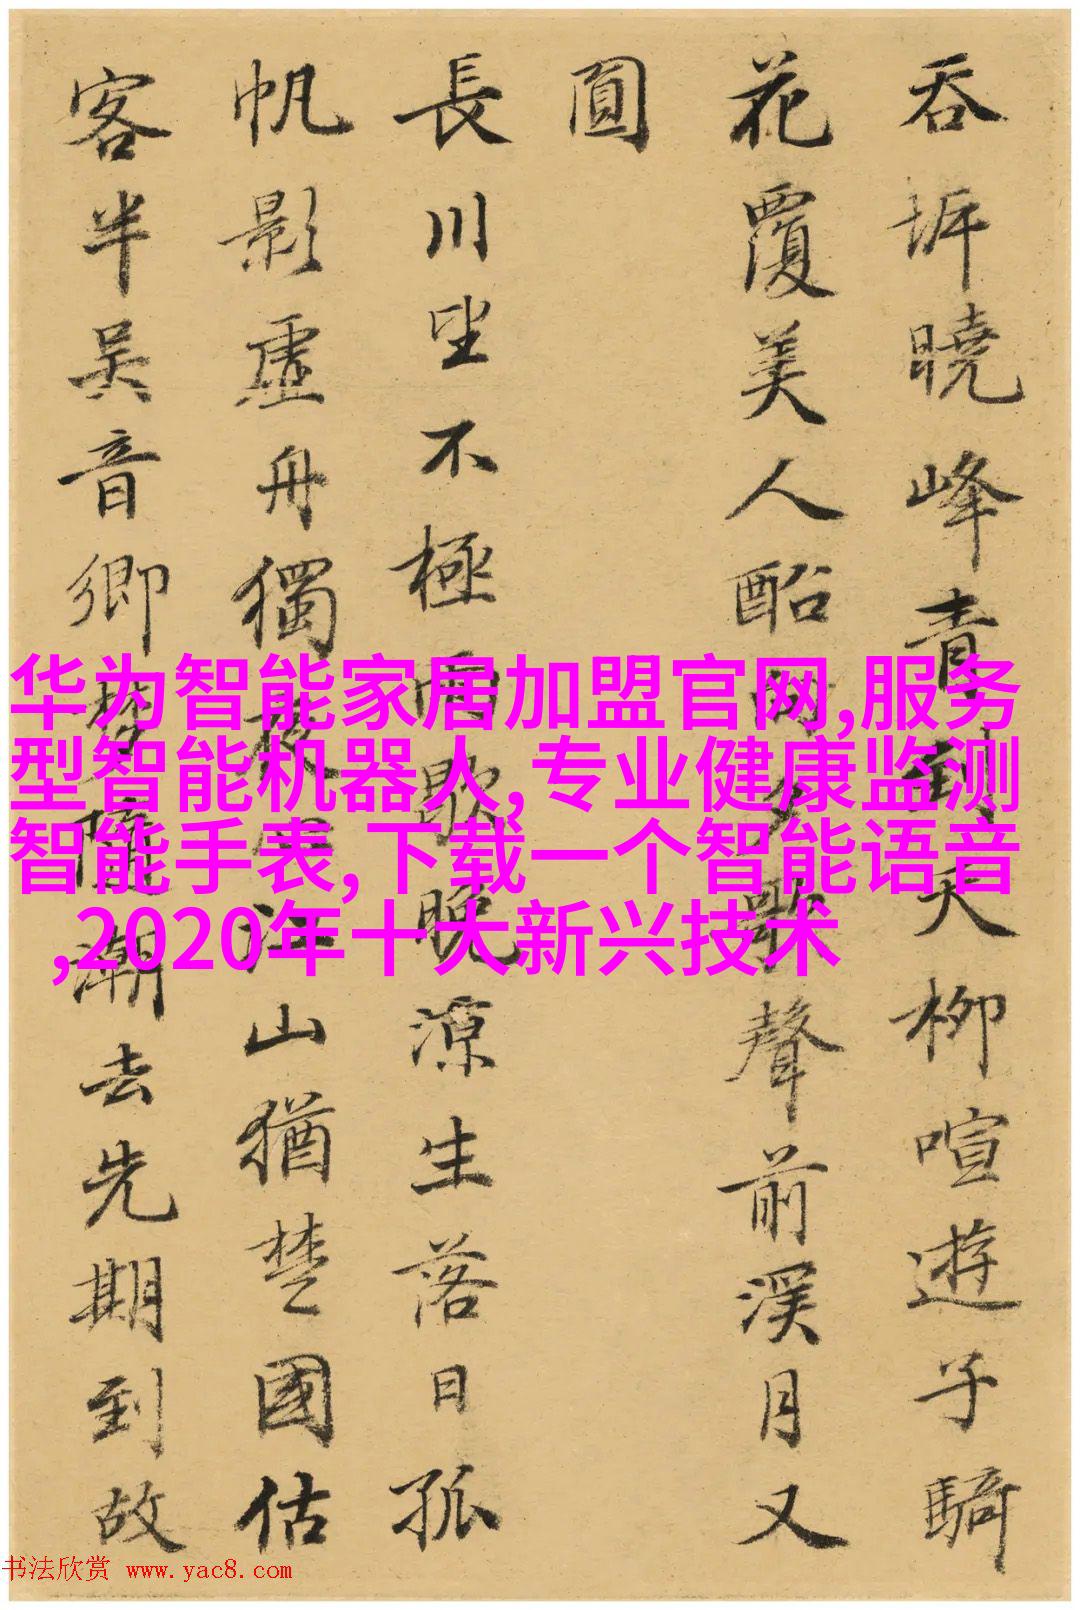 吞坼曉峰青到天柳喧遊子騎
花覆美人船向夕歌聲前溪月又
圓
長川望不極雨歇晚涼生落日孤
帆影虛舟獨夜江山猶楚國估
客半吳音鄉夢隨潮去先期到故
华为智能家居加盟官网,服务
型智能机器人,专业健康监测
智能手表,下载一个智能语音
,2020年十大新兴技术
书法欣赏 www.yac8.com